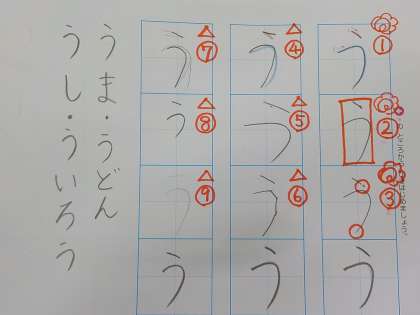 ① う
② う
③ う
う
④ う
⑤ う
⑥ う
う
⑦ う
⑧ う
⑨ う
う
うま・うどん
うし・ういろう